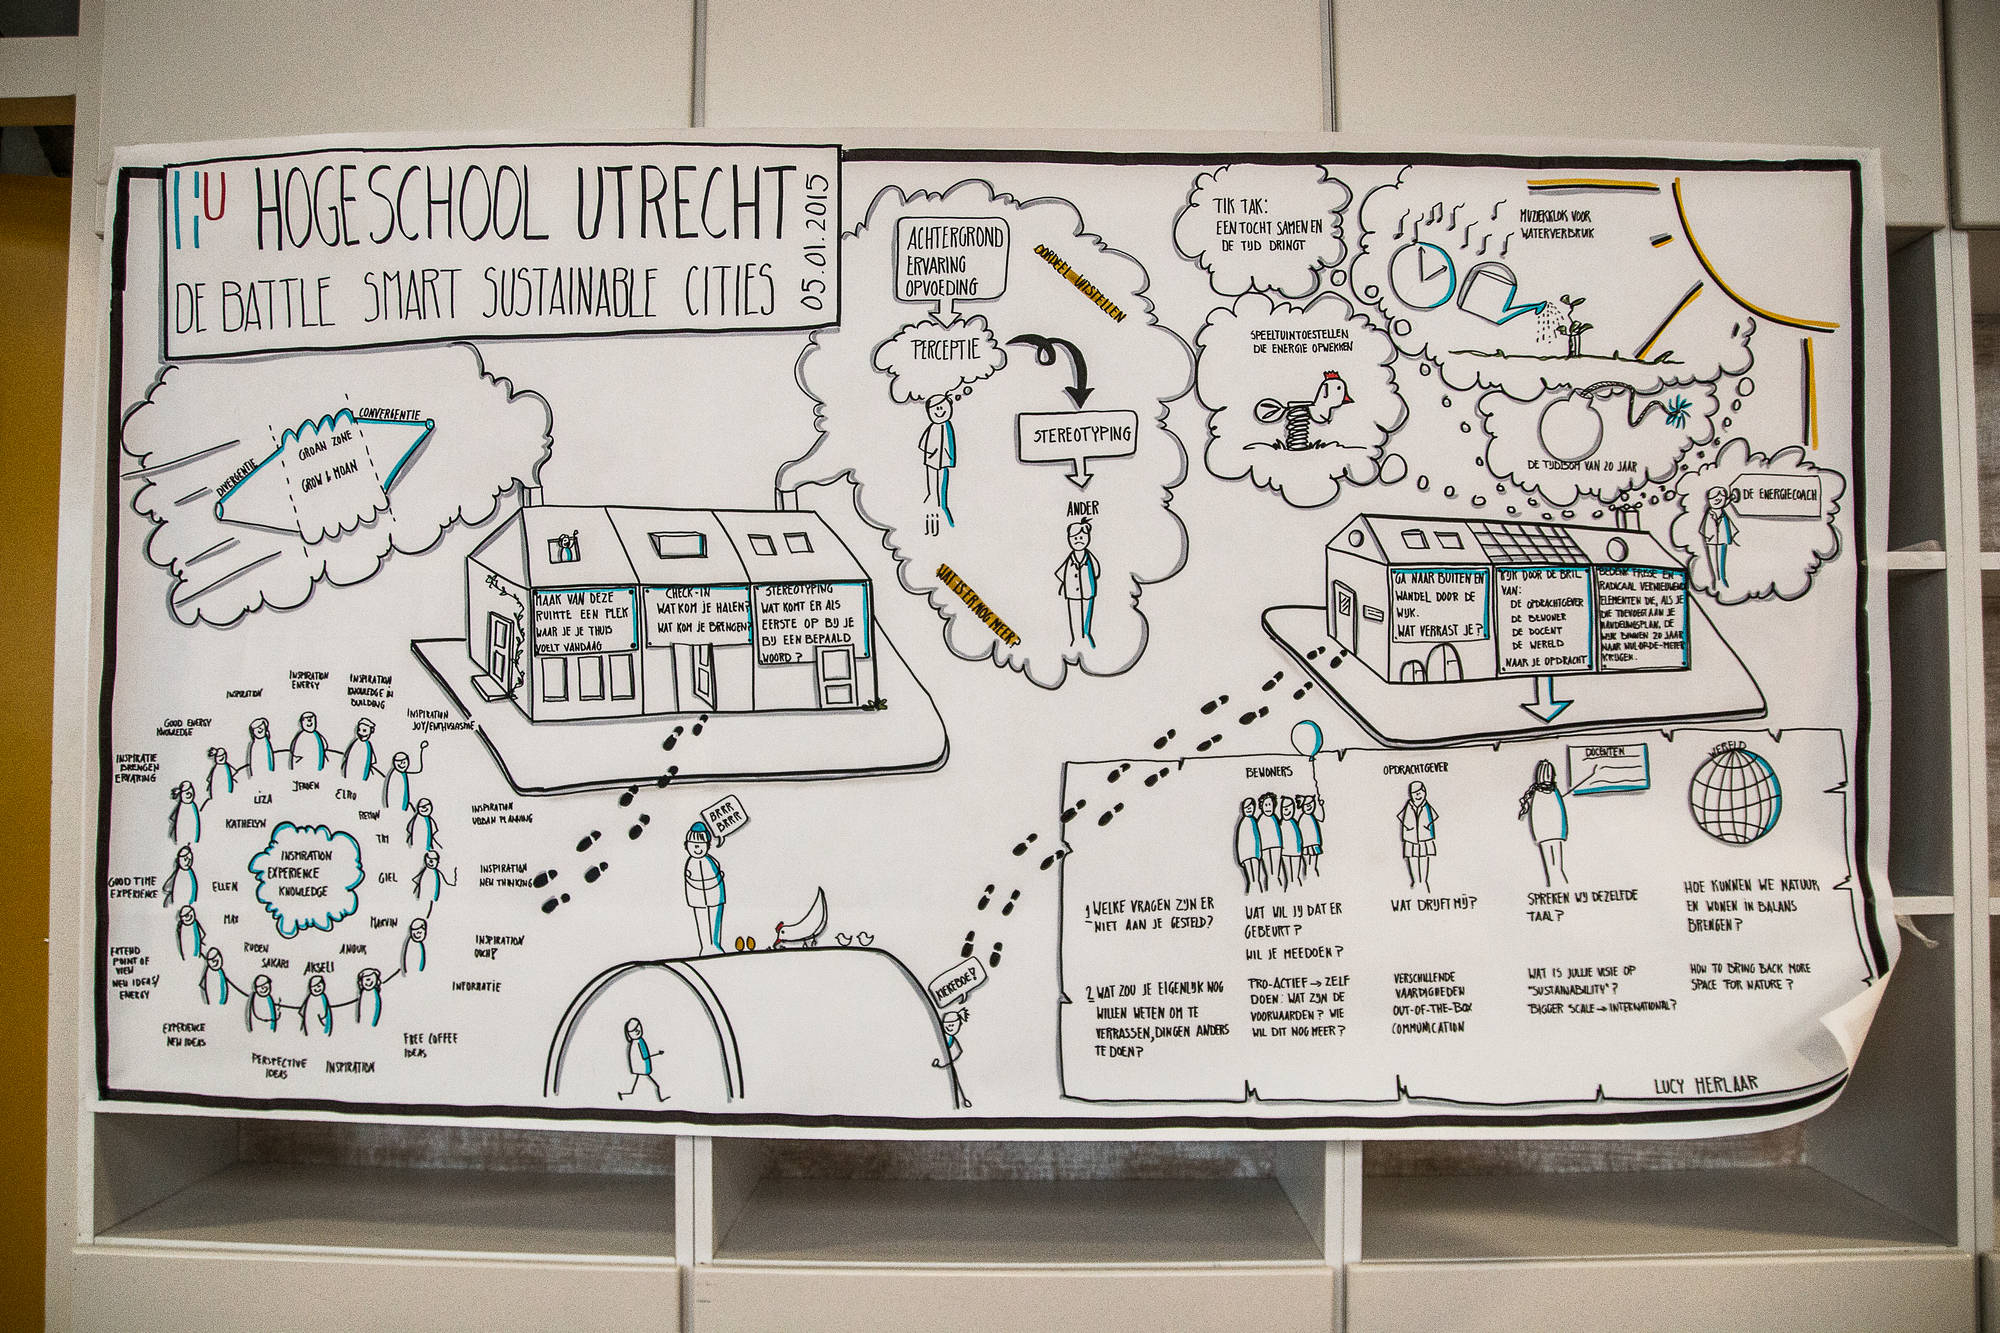 HU HOGESCHOOL UTRECHT
DE BATTLE SMART SUSTAINABLE CITIES
05.01.2015
DIVERGENTIE
GROAN ZONE
GROW & MOAN
CONVERGENTIE
ACHTERGROND
ERVARING
OPVOEDING
OORDEEL UITSTELLEN
PERCEPTIE
JIJ
STEREOTYPING
ANDER
WAT IS ER NOG MEER?
TIK TAK:
EEN TOCHT SAMEN EN
DE TIJD DRINGT
MUZIEKKLOK VOOR
WATERVERBRUIK
SPEELTUINTOESTELLEN
DIE ENERGIE OPWEKKEN
DE TIJDBOM VAN 20 JAAR
DE ENERGIECOACH
MAAK VAN DEZE
RUIMTE EEN PLEK
WAAR JE JE THUIS
VOELT VANDAAG
CHECK-IN
WAT KOM JE HALEN?
WAT KOM JE BRENGEN?
STEREOTYPING
WAT KOMT ER ALS
EERSTE OP BIJ JE
BIJ EEN BEPAALD
WOORD?
GA NAAR BUITEN EN
WANDEL DOOR DE
WIJK.
WAT VERRAST JE?
KIJK DOOR DE BRIL
VAN:
DE OPDRACHTGEVER
DE BEWONER
DE DOCENT
DE WERELD
NAAR JE OPDRACHT
BEDENK FRISSE EN
RADICAAL VERNIEUWENDE
ELEMENTEN DIE, ALS JE
DIE TOEVOEGT AAN JE
HANDELINGSPLAN, DE
WIJK BINNEN 20 JAAR
NAAR NUL-OP-DE-METER
KRIJGEN.
INSPIRATION
INSPIRATION
ENERGY
INSPIRATION
KNOWLEDGE IN
BUILDING
INSPIRATION
JOY/ENTHUSIASME
GOOD ENERGY
KNOWLEDGE
INSPIRATIE
BRENGEN
ERVARING
INSPIRATION
URBAN PLANNING
INSPIRATION
NEW THINKING
GOOD TIME
EXPERIENCE
EXTEND
POINT OF
VIEW
NEW IDEAS/
ENERGY
INSPIRATION
INFORMATIE
EXPERIENCE
NEW IDEAS
PERSPECTIVE
IDEAS
INSPIRATION
FREE COFFEE
IDEAS
LIZA
JEROEN
ELRO
TIM
KATHELYN
ELLEN
GIEL
MAX
MARVIN
RUBEN
SAKARI
AKSELI
ANOUK
INSPIRATION
EXPERIENCE
KNOWLEDGE
BRRR
BRRR
KIEKEBOE!
BEWONERS
OPDRACHTGEVER
DOCENTEN
WERELD
1 WELKE VRAGEN ZIJN ER
NIET AAN JE GESTELD?
WAT WIL JIJ DAT ER
GEBEURT?
WIL JE MEEDOEN?
WAT DRIJFT MIJ?
SPREKEN WIJ DEZELFDE
TAAL?
HOE KUNNEN WE NATUUR
EN WONEN IN BALANS
BRENGEN?
2 WAT ZOU JE EIGENLIJK NOG
WILLEN WETEN OM TE
VERRASSEN, DINGEN ANDERS
TE DOEN?
PRO-ACTIEF → ZELF
DOEN: WAT ZIJN DE
VOORWAARDEN? WIE
WIL DIT NOG MEER?
VERSCHILLENDE
VAARDIGHEDEN
OUT-OF-THE-BOX
COMMUNICATION
WAT IS JULLIE VISIE OP
"SUSTAINABILITY"?
BIGGER SCALE → INTERNATIONAL?
HOW TO BRING BACK MORE
SPACE FOR NATURE?
LUCY HERLAAR